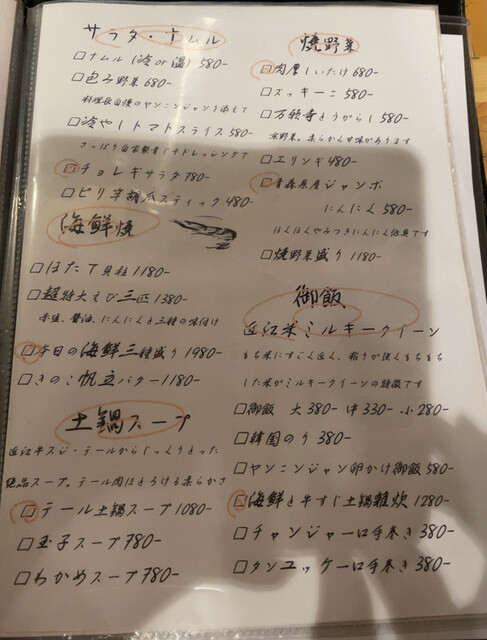 サラダ・ナムル
□ナムル(冷or温)580-
□包み野菜680-
料理長自慢のヤンニンジャンを添えて
□冷やしトマトスライス580-
さっぱり自家製青じそドレッシングで
□チョレギサラダ780-
□ピリ辛胡瓜スティック480-
海鮮焼
□ほたて貝柱1180-
□超特大えび三匹1380-
赤塩、醤油、にんにくと三種の味付け
□本日の海鮮三種盛り1980-
□きのこ帆立バター1180-
土鍋スープ
近江牛スジ・テールからじっくりとった
絶品スープ。テール肉はとろける柔らかさ
□テール土鍋スープ1080-
□玉子スープ780-
□わかめスープ780-
焼野菜
□肉厚しいたけ680-
□ズッキーニ580-
□万願寺とうがらし580-
京野菜。柔らかく甘味があります
□エリンギ480-
□青森県産ジャンボ
にんにく580-
ほくほくやみつきにんにく絶品です
□焼野菜盛り1180-
御飯
近江米ミルキークイーン
もち米にすごく近く、粘りが強くもちもち
した米がミルキークイーンの特徴です
□御飯 大380- 中330- 小280-
□韓国のり380-
□ヤンニンジャン卵かけ御飯580-
□海鮮と牛すじ土鍋雑炊1280-
□チャンジャ一口手巻き380-
□タンユッケ一口手巻き380-